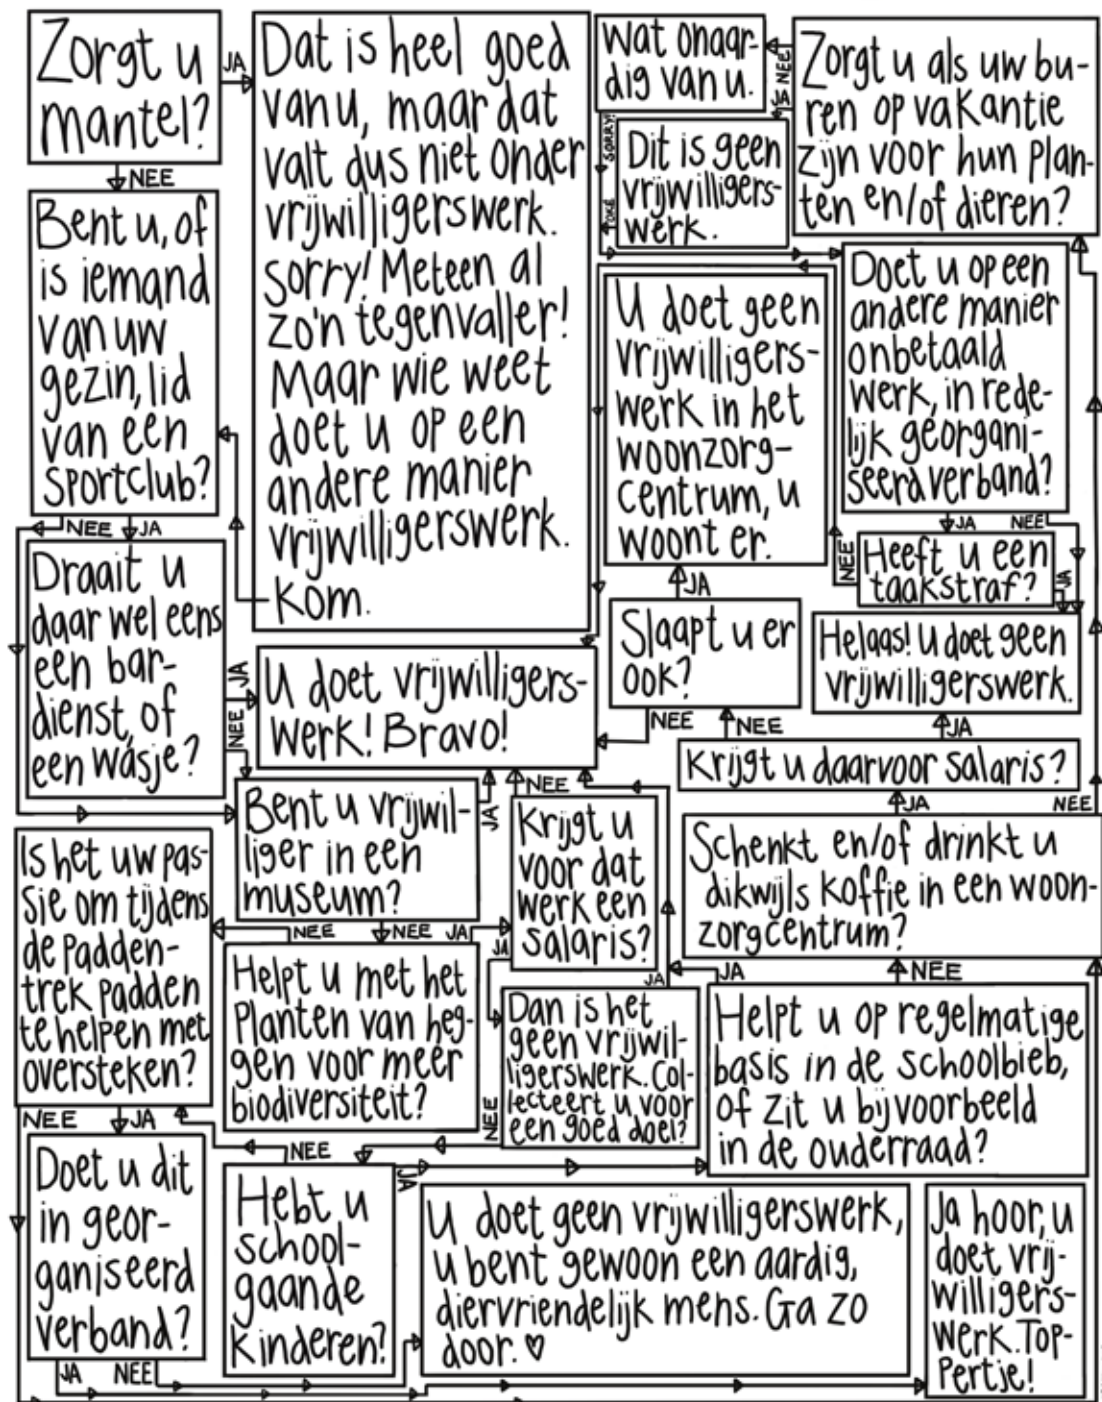 Zorgt u
mantel?
JA
NEE
Dat is heel goed
van u, maar dat
valt dus niet onder
vrijwilligerswerk.
Sorry! Meteen al
zo'n tegenvaller!
Maar wie weet
doet u op een
andere manier
vrijwilligerswerk.
Kom.
Wat onaar-
dig van u.
SORRY!
NEE
JA
Dit is geen
vrijwilligers-
werk.
OKÉ
Zorgt u als uw bu-
ren op vakantie
zijn voor hun plan-
ten en/of dieren?
Bent u, of
is iemand
van uw
gezin, lid
van een
sportclub?
NEE
JA
U doet geen
vrijwilligers-
werk in het
woonzorg-
centrum, u
woont er.
JA
Doet u op een
andere manier
onbetaald
werk, in rede-
lijk georgani-
seerd verband?
JA
NEE
Heeft u een
taakstraf?
NEE
JA
Draait u
daar wel eens
een bar-
dienst, of
een wasje?
JA
NEE
U doet vrijwilligers-
werk! Bravo!
Slaapt u er
ook?
NEE
NEE
Helaas! U doet geen
vrijwilligerswerk.
JA
Krijgt u daarvoor salaris?
JA
NEE
Bent u vrijwil-
liger in een
museum?
JA
NEE
Krijgt u
voor dat
werk een
salaris?
NEE
JA
Schenkt en/of drinkt u
dikwijls koffie in een woon-
zorgcentrum?
NEE
Is het uw pas-
sie om tijdens
de padden-
trek padden
te helpen met
oversteken?
NEE
JA
Helpt u met het
planten van heg-
gen voor meer
biodiversiteit?
NEE
JA
Dan is het
geen vrijwil-
ligerswerk. Col-
lecteert u voor
een goed doel?
JA
NEE
Helpt u op regelmatige
basis in de schoolbieb,
of zit u bijvoorbeeld
in de ouderraad?
JA
Doet u dit
in geor-
ganiseerd
verband?
JA
NEE
Hebt u
school-
gaande
kinderen?
NEE
JA
U doet geen vrijwilligerswerk,
u bent gewoon een aardig,
diervriendelijk mens. Ga zo
door. ♡
Ja hoor, u
doet vrij-
willigers-
werk. Top-
pertje!